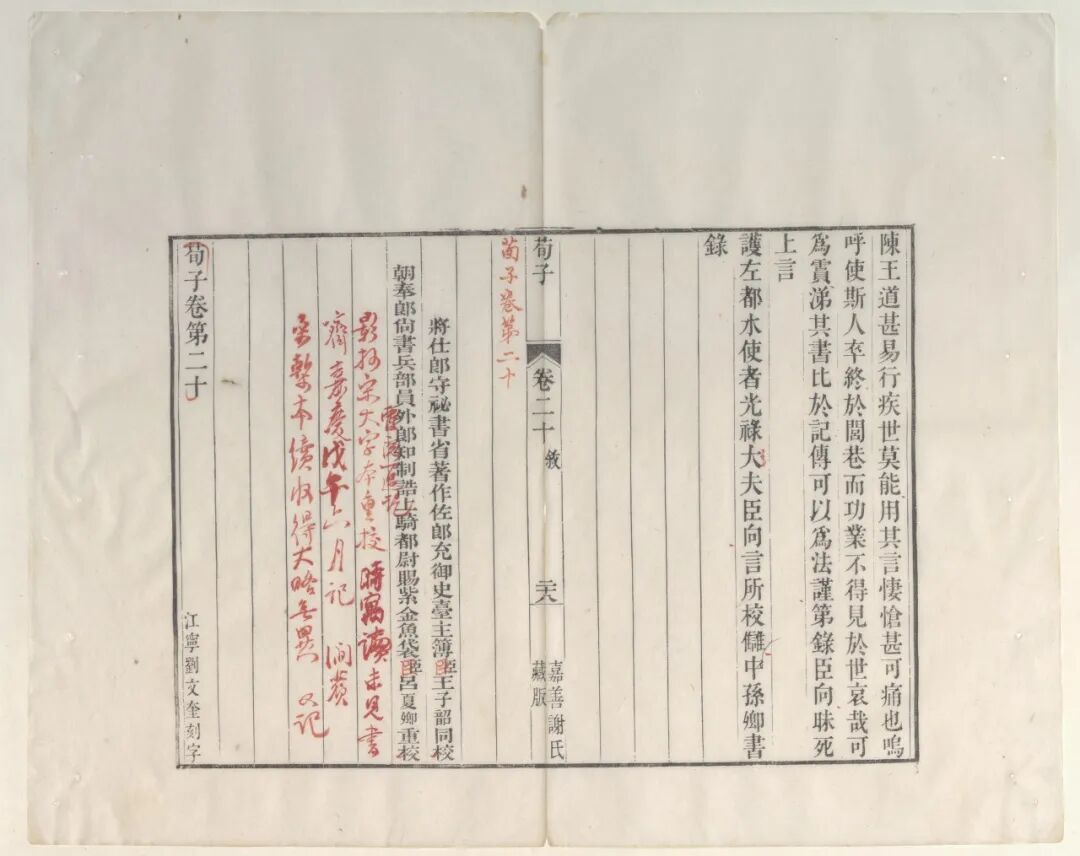 陳王道甚易行疾世莫能用其言悽愴甚可痛也嗚
呼使斯人卒終於閭巷而功業不得見於世哀哉可
爲霣涕其書比於記傳可以爲法謹第錄臣向昧死
上言
護左都水使者光祿大夫臣向言所校讎中孫卿書
錄
荀子 卷二十 敘
嘉善謝氏
藏版
荀子卷第二十
將仕郎守祕書省著作佐郎充御史臺主簿臣王子韶同校
朝奉郎尙書兵部員外郎知制誥上騎都尉賜紫金魚袋臣呂夏卿重校
影抄宋大字本重校時寓讀未見書
齋嘉慶戊午六月記 澗薲
宋槧本續收得大略無異 又記
荀子卷第二十
江寧劉文奎刻字